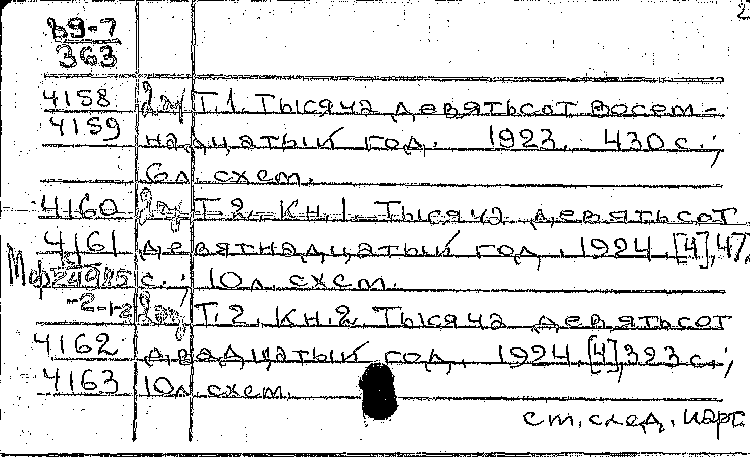 2
в9-7
363
4158 2экз Т.1. Тысяча девятьсот восем-
4159 надцатый год. 1923. 430 с.;
6 л. схем.
4160 2экз Т.2. Кн.1. Тысяча девятьсот
4161 девятнадцатый год. 1924. [4],47
с.; 10 л. схем.
-2-
2экз Т.2. Кн.2. Тысяча девятьсот
4162 двадцатый год. 1924. [4],323 с.;
4163 10 л. схем.
см. след. карт.